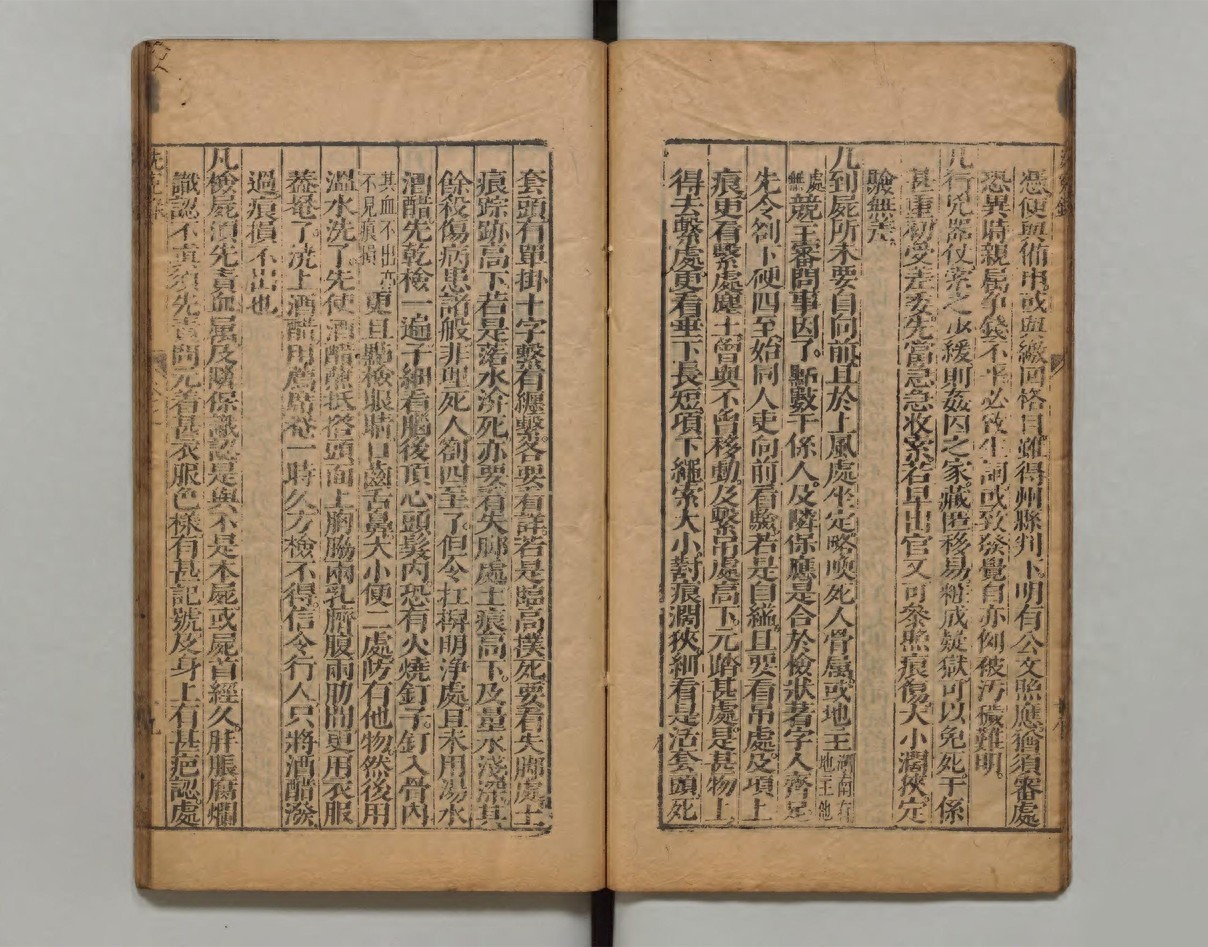 憑使與備申或與繳回格目雖得州縣判下明有公文照應猶須審處
恐異時親屬爭錢不平必致生詞或致發覺自亦例被汚穢難明
凡行兇器仗索之少緩則姦囚之家藏匿移易粧成疑獄可以免死干係
甚重初受差委先當急急收索若早出官又可參照痕傷大小濶狹定
驗無差
凡到屍所未要自向前且於上風處坐定略喚死人骨屬或地主湖南有地主他
處無競主審問事因了㸃數干係人及隣保應是合於檢狀著字人齊足
先令劄下硬四至始同人吏向前看驗若是自縊且要看吊處及項上
痕更看繫處塵土曾與不曾移動及繫吊處高下元踏甚處是甚物上
得去繫處更看垂下長短項下繩索大小對痕濶狹細看是活套頭死
套頭有單掛十字繫有纏繫各要看詳若是臨高撲死要看失脚處土
痕踪跡高下若是落水渰死亦要看失脚處土痕高下及量水淺深其
餘殺傷病患諸般非理死人劄四至了但令扛舁明淨處且未用湯水
酒醋先乾檢一遍子細看腦後頂心頭髮內恐有火燒釘子釘入骨內
其血不出亦不見痕損更且㸃檢眼睛口齒舌鼻大小便二處防有他物然後用
溫水洗了先使酒醋蘸紙搭頭面上胸脇兩乳臍腹兩肋間更用衣服
蓋罨了澆上酒醋用薦席罨一時久方檢不得信令行人只將酒醋潑
過痕損不出也
凡檢屍須先責血屬及隣保識認是與不是本屍或屍首經久胖脹腐爛
識認不眞須先責問元着甚衣服色樣有甚記號及身上有甚疤認處